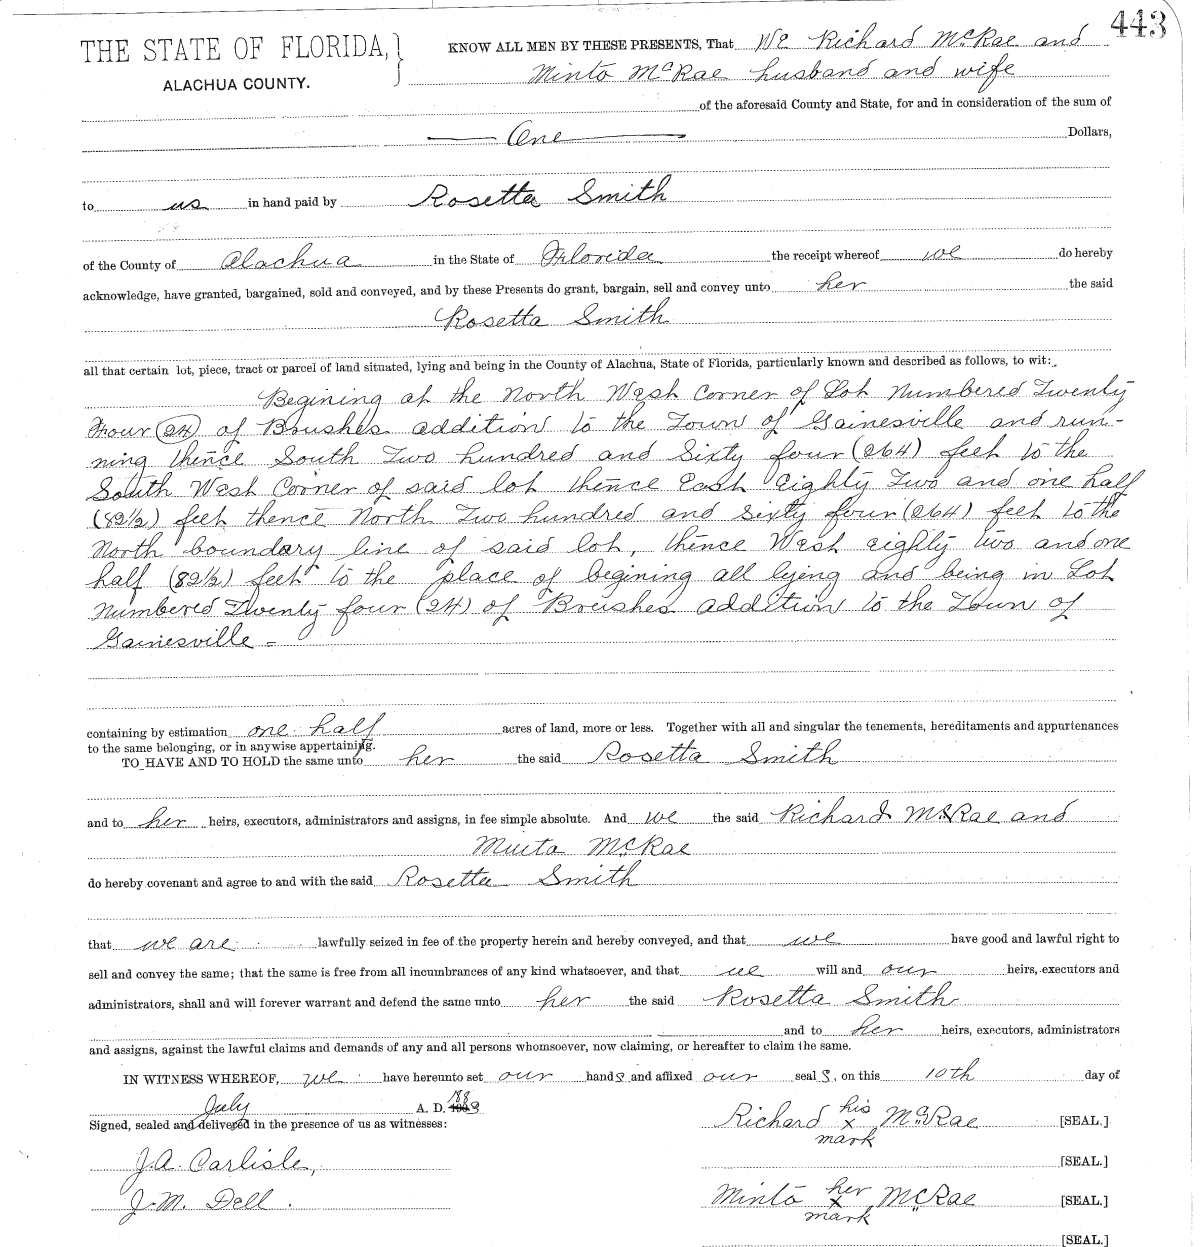 443
THE STATE OF FLORIDA,
ALACHUA COUNTY.
KNOW ALL MEN BY THESE PRESENTS, That We Richard McRae and
Minto McRae husband and wife
of the aforesaid County and State, for and in consideration of the sum of
One Dollars,
to us in hand paid by Rosetta Smith
of the County of Alachua in the State of Florida the receipt whereof we do hereby
acknowledge, have granted, bargained, sold and conveyed, and by these Presents do grant, bargain, sell and convey unto her the said
Rosetta Smith
all that certain lot, piece, tract or parcel of land situated, lying and being in the County of Alachua, State of Florida, particularly known and described as follows, to wit:
Begining at the North West Corner of Lot Numbered Twenty
Four (24) of Brushes addition to the Town of Gainesville and run-
ning thence South Two hundred and Sixty four (264) feet to the
South West Corner of said lot thence East Eighty Two and one half
(82½) feet thence North Two hundred and Sixty four (264) feet to the
North boundary line of said lot, thence West eighty two and one
half (82½) feet to the place of begining all lyeing and being in Lot
Numbered Twenty four (24) of Brushes addition to the Town of
Gainesville =
containing by estimation one half acres of land, more or less. Together with all and singular the tenements, hereditaments and appurtenances
to the same belonging, or in anywise appertaining.
TO HAVE AND TO HOLD the same unto her the said Rosetta Smith
and to her heirs, executors, administrators and assigns, in fee simple absolute. And we the said Richard McRae and
Minta McRae
do hereby covenant and agree to and with the said Rosetta Smith
that we are lawfully seized in fee of the property herein and hereby conveyed, and that we have good and lawful right to
sell and convey the same; that the same is free from all incumbrances of any kind whatsoever, and that we will and our heirs, executors and
administrators, shall and will forever warrant and defend the same unto her the said Rosetta Smith
and to her heirs, executors, administrators
and assigns, against the lawful claims and demands of any and all persons whomsoever, now claiming, or hereafter to claim the same.
IN WITNESS WHEREOF, we have hereunto set our hands and affixed our seal s, on this 10th day of
July A. D. 188
Signed, sealed and delivered in the presence of us as witnesses:
Richard his x mark McRae [SEAL.]
J.A. Carlisle, [SEAL.]
J.M. Dell. Minto her x mark McRae [SEAL.]
[SEAL.]